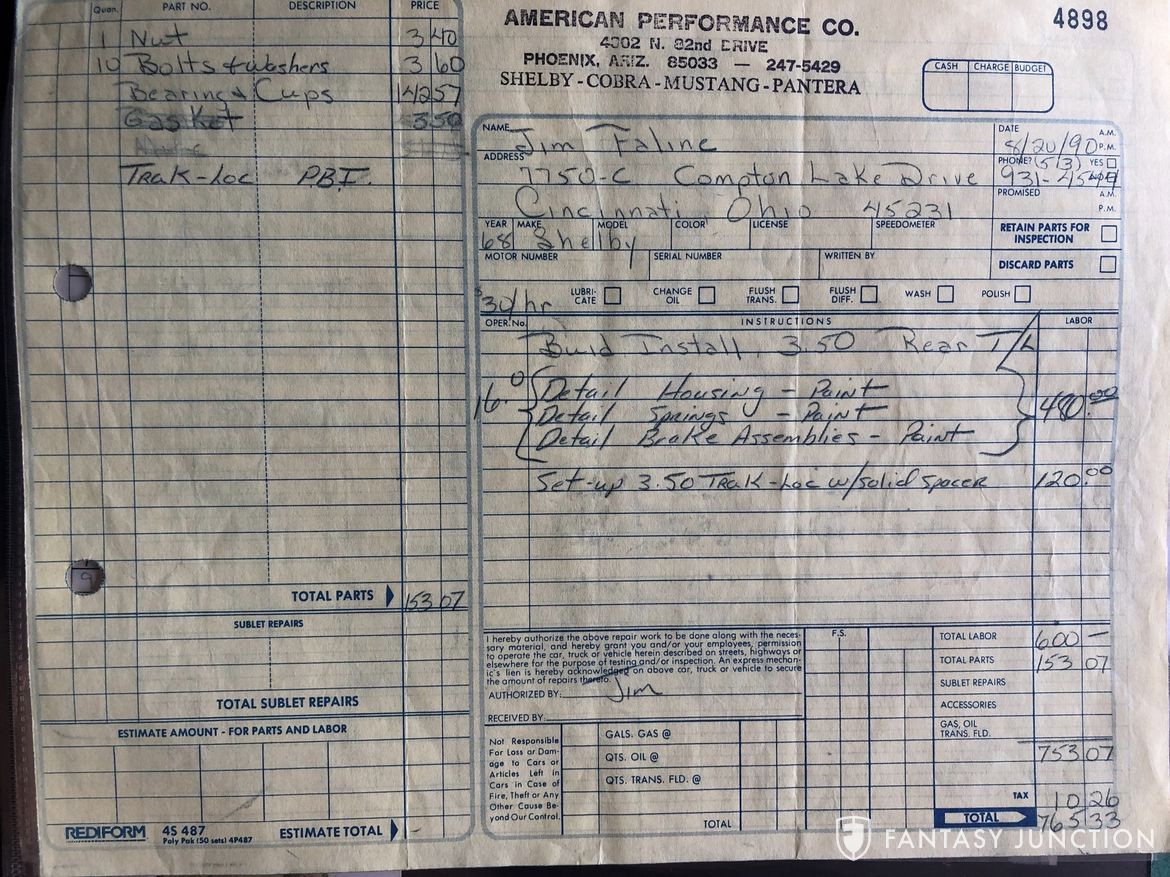 Quan. PART NO. DESCRIPTION PRICE
1 Nut 3 40
10 Bolts & washers 3 60
Bearing & Cups 142 57
Gasket 3 50
Trak-Loc P.B.F.
TOTAL PARTS 153 07
SUBLET REPAIRS
TOTAL SUBLET REPAIRS
ESTIMATE AMOUNT - FOR PARTS AND LABOR
REDIFORM 4S 487 ESTIMATE TOTAL
Poly Pak (50 sets) 4P487
AMERICAN PERFORMANCE CO.
4302 N. 82nd DRIVE
PHOENIX, ARIZ. 85033 — 247-5429
SHELBY - COBRA - MUSTANG - PANTERA
4898
CASH CHARGE BUDGET
NAME Jim Faline
DATE 8/20/90 A.M. P.M.
ADDRESS 7750-C Compton Lake Drive
PHONE? (513) YES
931-4544
Cincinnati, Ohio 45231
PROMISED A.M. P.M.
YEAR MAKE MODEL COLOR LICENSE SPEEDOMETER
68 Shelby
RETAIN PARTS FOR INSPECTION
MOTOR NUMBER SERIAL NUMBER WRITTEN BY
DISCARD PARTS
$30/hr LUBRI-CATE CHANGE OIL FLUSH TRANS. FLUSH DIFF. WASH POLISH
OPER. No. INSTRUCTIONS LABOR
Build Install 3.50 Rear T/L
Detail Housing - Paint
16.0 Detail Springs - Paint 480.00
Detail Brake Assemblies - Paint
Set-up 3.50 Trak-Loc w/solid spacer 120.00
I hereby authorize the above repair work to be done along with the neces-
sary material, and hereby grant you and/or your employees, permission
to operate the car, truck or vehicle herein described on streets, highways or
elsewhere for the purpose of testing and/or inspection. An express mechan-
ic's lien is hereby acknowledged on above car, truck or vehicle to secure
the amount of repairs thereto.
AUTHORIZED BY: Jim
RECEIVED BY:
F.S.
TOTAL LABOR 600 —
TOTAL PARTS 153 07
SUBLET REPAIRS
ACCESSORIES
GAS, OIL
TRANS. FLD.
753 07
TAX 10 26
TOTAL 765 33
Not Responsible
For Loss or Dam-
age to Cars or
Articles Left in
Cars in Case of
Fire, Theft or Any
Other Cause Be-
yond Our Control.
GALS. GAS @
QTS. OIL @
QTS. TRANS. FLD. @
TOTAL
FANTASY JUNCTION